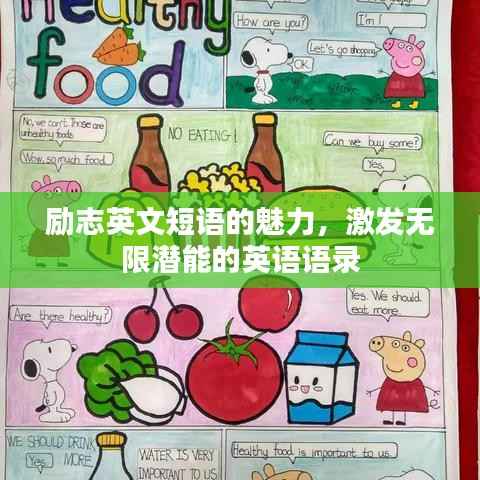 Healthy
food
How are you?
I'm !
Let's go shopping.
OK.
No, we can't. Those are
unhealthy foods
Wow, so much food.
NO EATING!
Can we buy some?
Yes.
励志英文短语的魅力，激发无
限潜能的英语语录
Are there healthy?
Yes. We should
eat more.
WE SHOULD DRINK
MORE
Yes.
WATER IS VERY
IMPORTANT TO US
Healthy food is important to us.